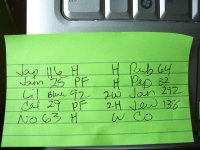 Jap 116 H H Rub 64
Jam 25 PF H Pep 32
Lil Blue 92 2W Jan 292
Cal 29 PF 2-H Jaw 138
No 63 H W CO